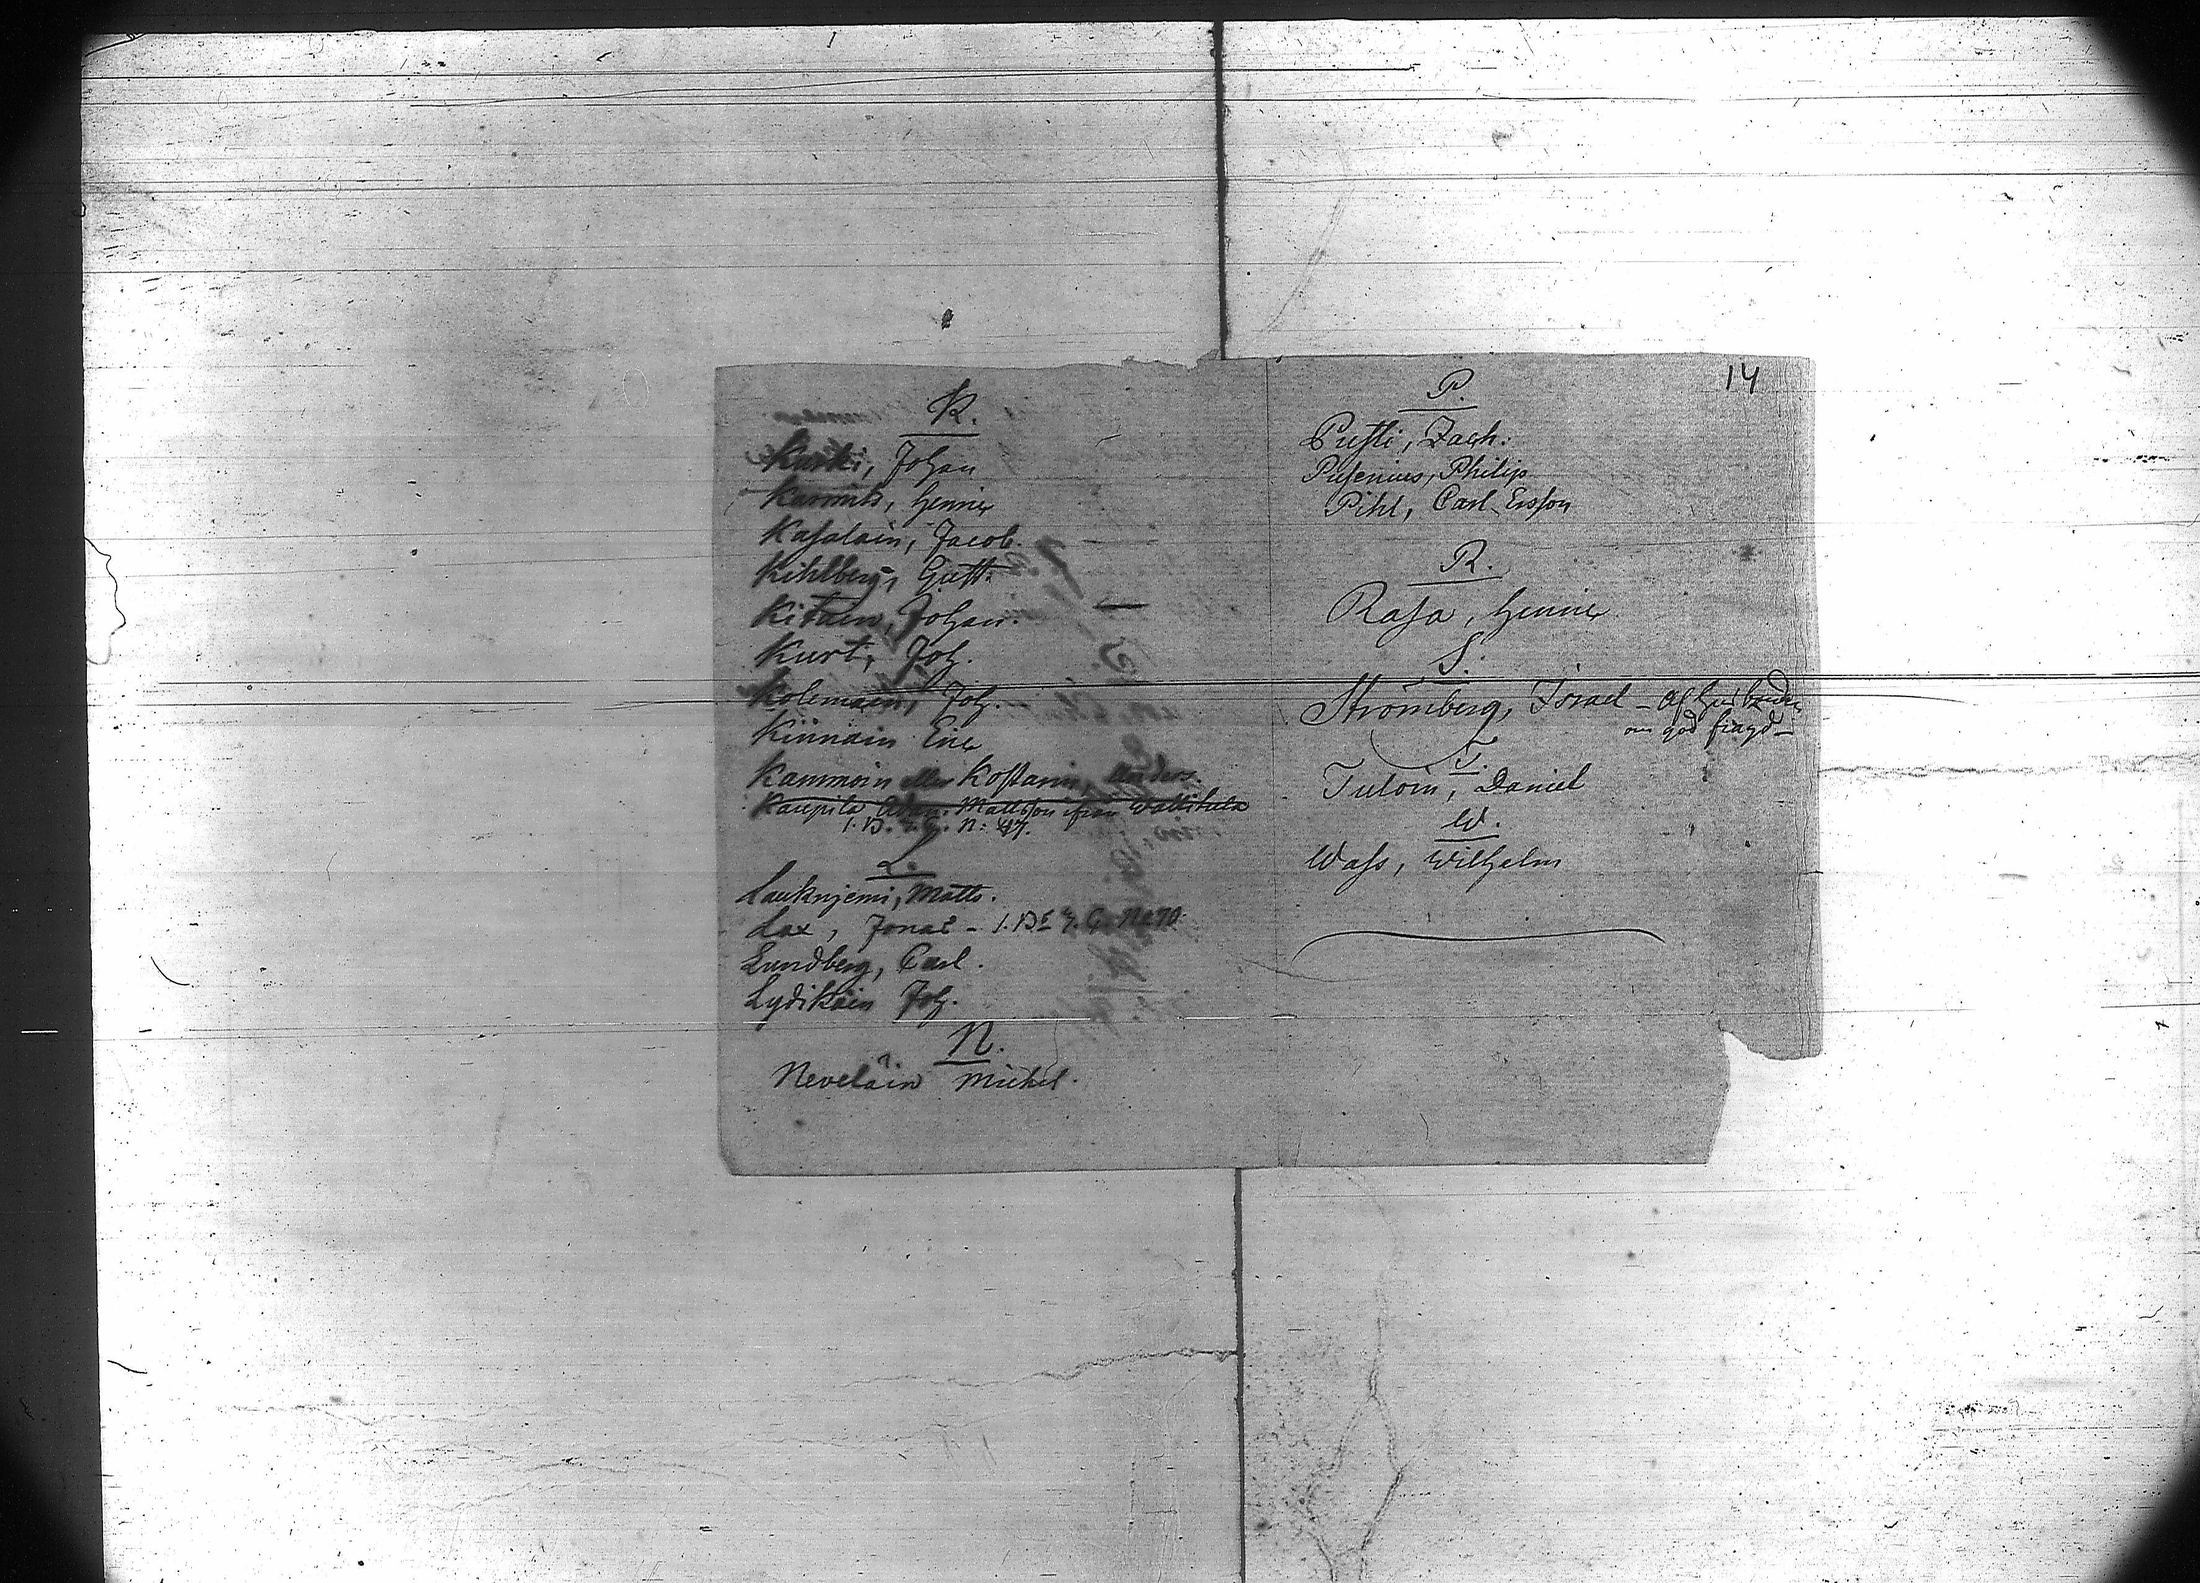 K.
Kurki, Johan
Karmits, Henric
Kasalain, Jacob.
Kihlberg, Gust.
Kitain, Johan.
Kurt, Joh.
Kolemain, Joh.
Kiinnain Eric
Kammoin eller Kostarin, Anders.
Kaupila Adam Mattsson från Wallikala
1. B. 7. G. N: 47.
L.
Lauknjemi, Matts.
Lax, Jonas - 1. Bd 7. G. No 70.
Lundberg, Carl.
Lydikäin Joh.
N.
Neveläin Michel.
14
P.
Pusti, Zach.
Pusenius, Philip
Pihl, Carl Ersson
R.
Rasa, Henric
S.
Strömberg, Israel - af
om god frägd -
T.
Tuloin, Daniel
W.
Wass, Wilhelm